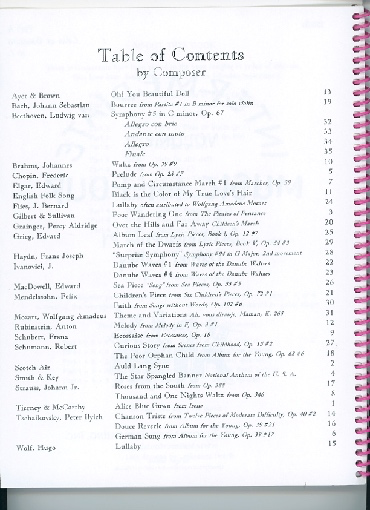 Table of Contents
by Composer
Ayer & Brown Oh! You Beautiful Doll 13
Bach, Johann Sebastian Bourree from Partita #1 in B minor for solo violin 19
Beethoven, Ludwig van Symphony #5 in C minor, Op. 67
Allegro con brio 32
Andante con moto 33
Allegro 34
Finale 35
Brahms, Johannes Waltz from Op. 39 #9 10
Chopin, Frederic Prelude from Op. 28 #7 5
Elgar, Edward Pomp and Circumstance March #1 from Marches, Op. 39 7
English Folk Song Black is the Color of My True Love's Hair 11
Flies, J. Bernard Lullaby often attributed to Wolfgang Amadeus Mozart 24
Gilbert & Sullivan Poor Wandering One from The Pirates of Penzance 3
Grainger, Percy Aldridge Over the Hills and Far Away Children's March 20
Grieg, Edvard Album Leaf from Lyric Pieces, Book I, Op. 12 #7 25
March of the Dwarfs from Lyric Pieces, Book V, Op. 54 #3 29
Haydn, Franz Joseph "Surprise Symphony" Symphony #94 in G Major, 2nd movement 28
Ivanovici, J. Danube Waves #1 from Waves of the Danube Waltzes 22
Danube Waves #4 from Waves of the Danube Waltzes 23
MacDowell, Edward Sea Piece "Song" from Sea Pieces, Op. 55 #5 26
Mendelssohn, Felix Children's Piece from Six Children's Pieces, Op. 72 #1 21
Faith from Songs without Words, Op. 102 #6 30
Mozart, Wolfgang Amadeus Theme and Variations Ah, vous dirai-je, Maman, K. 265 31
Rubinstein, Anton Melody from Melody in F, Op. 3 #1 12
Schubert, Franz Ecossaise from Ecossaises, Op. 18 9
Schumann, Robert Curious Story from Scenes from Childhood, Op. 15 #2 27
The Poor Orphan Child from Album for the Young, Op. 68 #6 18
Scotch Air Auld Lang Syne 2
Smith & Key The Star Spangled Banner National Anthem of the U. S. A. 4
Strauss, Johann Jr. Roses from the South from Op. 388 17
Thousand and One Nights Waltz from Op. 346 8
Tierney & McCarthy Alice Blue Gown from Irene 1
Tschaikovsky, Peter Ilyich Chanson Triste from Twelve Pieces of Moderate Difficulty, Op. 40 #2 14
Douce Reverie from Album for the Young, Op. 39 #21 16
German Song from Album for the Young, Op. 39 #17 6
Wolf, Hugo Lullaby 15